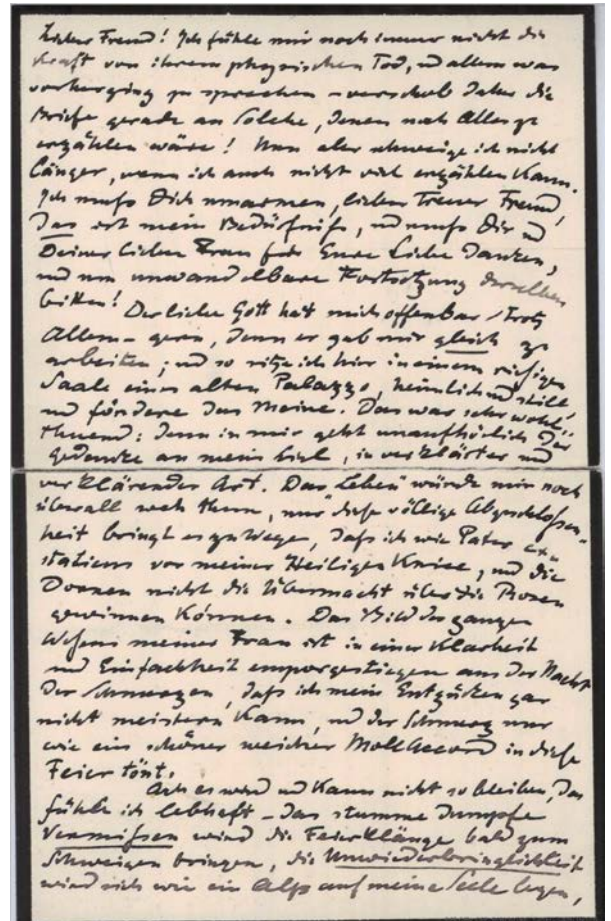 Lieber Freund! Ich fühle mir noch immer nicht die
Kraft von ihrem physischen Tod, und allem was
vorherging zu sprechen – verschob daher die
Briefe gerade an Solche, denen noch Alles zu
erzählen wäre! Nun aber schweige ich nicht
länger, wenn ich auch nicht viel erzählen kann.
Ich muſs Dich umarmen, lieber treuer Freund,
das ist mein Bedürfniſs, und muſs Dir u
Deiner lieben Frau für Eure Liebe danken,
und um unwandelbare Fortsetzung derselben
bitten! Der liebe Gott hat mich offenbar – trotz
Allem – gern, denn er gab mir gleich zu
arbeiten; und so sitze ich hier in einem riesigen
Saale eines alten Palazzo, heimlich und still
und fördere das Meine. Das war sehr wohl-
thuend: denn in mir geht unaufhörlich das
gedenken an mein, in verklärter und
verklärender Art. Das Leben würde mir noch
überall weh thun, nur diese völlige Abgeschlossen-
heit bringt es zu Wege, daſs ich wie Pater ex-
staticus vor meiner Heiligen kniee, und die
Dornen nicht die Übermacht über die Rosen
gewinnen können. Das Bild des ganzen
Wesens meiner Frau ist in einer Klarheit
und Einfachheit emporgestiegen aus der Nacht
der Schmerzen, daſs ich mein Entzücken gar
nicht meistern kann, und der Schmerz nur
wie ein schöner weicher Mollaccord in diese
Feier tönt.
Ach es wird und kann nicht so bleiben, das
fühle ich lebhaft – das stumme dumpfe
Vermissen wird die Feierklänge bald zum
Schweigen bringen, die Unwiederbringlichkeit
wird sich wie ein Alp auf meine Seele legen,